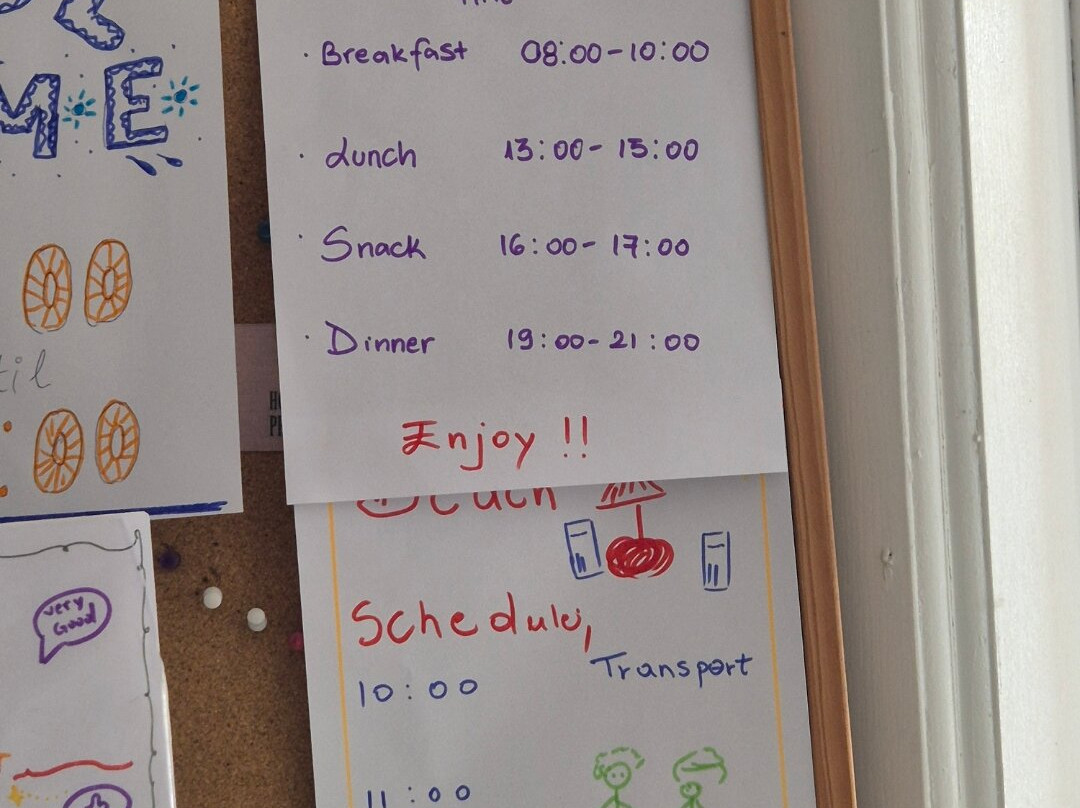 M E
til
· Breakfast 08:00-10:00
· Lunch 13:00-15:00
· Snack 16:00-17:00
· Dinner 19:00-21:00
Enjoy !!
Schedule,
Transport
10:00
11:00
very
Good